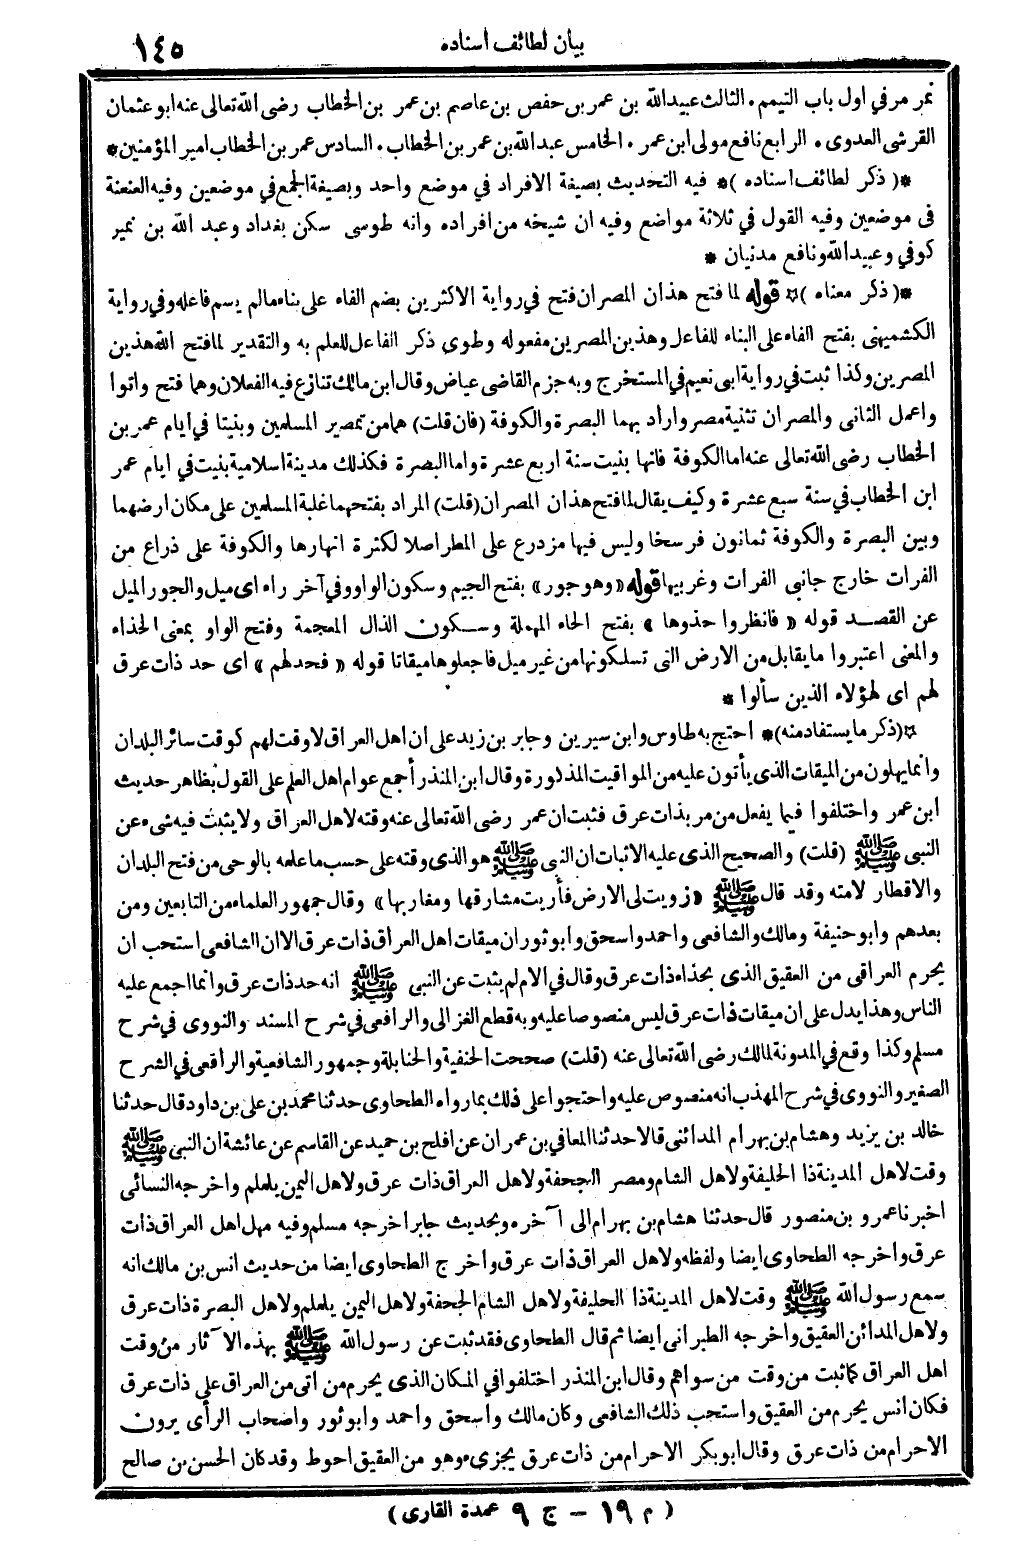 بيان لطائف اسناده ١٤٥
نمير مر في اول باب التيمم • الثالث عبيدالله بن عمر بن حفص بن عاصم بن عمر بن الخطاب رضى الله تعالى عنه ابو عثمان
القرشى العدوى • الرابع نافع مولى ابن عمر • الخامس عبدالله بن عمر بن الخطاب • السادس عمر بن الخطاب امير المؤمنين *
*( ذكر لطائف اسناده )* فيه التحديث بصيغة الافراد في موضع واحد وبصيغة الجمع في موضعين وفيه العنعنة
فى موضعين وفيه القول في ثلاثة مواضع وفيه ان شيخه من افراده وانه طوسى سكن بغداد وعبد الله بن نمير
كوفي وعبيدالله ونافع مدنيان *
*( ذكر معناه )* قوله لما فتح هذان المصران فتح في رواية الاكثرين بضم الفاء على بناء مالم يسم فاعله وفي رواية
الكشميهنى بفتح الفاء على البناء للفاعل وهذين المصرين مفعوله وطوى ذكر الفاعل للعلم به والتقدير لما فتح الله هذين
المصرين وكذا ثبت في رواية ابى نعيم في المستخرج وبه جزم القاضى عياض وقال ابن مالك تنازع فيه الفعلان وهما فتح واتوا
واعمل الثانى والمصران تثنية مصر واراد بهما البصرة والكوفة (فان قلت) هما من تمصير المسلمين وبنيتا في ايام عمر بن
الخطاب رضى الله تعالى عنه اما الكوفة فانها بنيت سنة اربع عشرة واما البصرة فكذلك مدينة اسلامية بنيت في ايام عمر
ابن الخطاب في سنة سبع عشرة وكيف يقال لما فتح هذان المصران (قلت) المراد بفتحهما غلبة المسلمين على مكان ارضهما
وبين البصرة والكوفة ثمانون فرسخا وليس فيها مزدرع على المطر اصلا لكثرة انهارها والكوفة على ذراع من
الفرات خارج جانبى الفرات وغربيها قوله «وهو جور» بفتح الجيم وسكون الواو وفي آخر راء اى ميل والجور الميل
عن القصد قوله « فانظروا حذوها » بفتح الحاء المهملة وسكون الذال المعجمة وفتح الواو بمعنى الحذاء
والمعنى اعتبروا ما يقابل من الارض التى تسلكونها من غير ميل فاجعلوها ميقاتا قوله « فحد لهم » اى حد ذات عرق
لهم اى لهؤلاء الذين سألوا *
*(ذكر ما يستفاد منه)* احتج به طاوس وابن سيرين وجابر بن زيد على ان اهل العراق لا وقت لهم كوقت سائر البلدان
وانما يهلون من الميقات الذى يأتون عليه من المواقيت المذكورة وقال ابن المنذر أجمع عوام اهل العلم على القول بظاهر حديث
ابن عمر واختلفوا فيما يفعل من مر بذات عرق فثبت ان عمر رضى الله تعالى عنه وقته لاهل العراق ولا يثبت فيه شىء عن
النبى ﷺ (قلت) والصحيح الذى عليه الاثبات ان النبى ﷺ هو الذى وقته على حسب ما علمه بالوحى من فتح البلدان
والاقطار لامته وقد قال ﷺ «زويت لى الارض فأريت مشارقها ومغاربها» وقال جمهور العلماء من التابعين ومن
بعدهم وابو حنيفة ومالك والشافعى واحمد واسحق وابو ثور ان ميقات اهل العراق ذات عرق الا ان الشافعى استحب ان
يحرم العراقى من العقيق الذى بحذاء ذات عرق وقال في الام لم يثبت عن النبى ﷺ انه حد ذات عرق وانما اجمع عليه
الناس وهذا يدل على ان ميقات ذات عرق ليس منصوصا عليه وبه قطع الغزالى والرافعى في شرح المسند والنووى في شرح
مسلم وكذا وقع في المدونة لمالك رضى الله تعالى عنه (قلت) صححت الحنفية والحنابلة وجمهور الشافعية والرافعى في الشرح
الصغير والنووى في شرح المهذب انه منصوص عليه واحتجوا على ذلك بما رواه الطحاوى حدثنا محمد بن على بن داود قال حدثنا
خالد بن يزيد وهشام بن بهرام المدائنى قالا حدثنا المعافي بن عمران عن افلح بن حميد عن القاسم عن عائشة ان النبى ﷺ
وقت لاهل المدينة ذا الحليفة ولاهل الشام ومصر الجحفة ولاهل العراق ذات عرق ولاهل اليمن يلملم واخرجه النسائى
اخبرنا عمرو بن منصور قال حدثنا هشام بن بهرام الى آخره وبحديث جابر اخرجه مسلم وفيه مهل اهل العراق ذات
عرق واخرجه الطحاوى ايضا ولفظه ولاهل العراق ذات عرق واخرج الطحاوى ايضا من حديث انس بن مالك انه
سمع رسول الله ﷺ وقت لاهل المدينة ذا الحليفة ولاهل الشام الجحفة ولاهل اليمن يلملم ولاهل البصرة ذات عرق
ولاهل المدائن العقيق واخرجه الطبرانى ايضا ثم قال الطحاوى فقد ثبت عن رسول الله ﷺ بهذه الآثار من وقت
اهل العراق كما ثبت من وقت من سواهم وقال ابن المنذر اختلفوا في المكان الذى يحرم من اتى من العراق على ذات عرق
فكان انس يحرم من العقيق واستحب ذلك الشافعى وكان مالك واسحق واحمد وابو ثور واصحاب الرأى يرون
الاحرام من ذات عرق وقال ابو بكر الاحرام من ذات عرق يجزىء وهو من العقيق احوط وقد كان الحسن بن صالح
( م ١٩ - ج ٩ عمدة القارى )